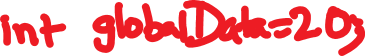 int globalData=20;